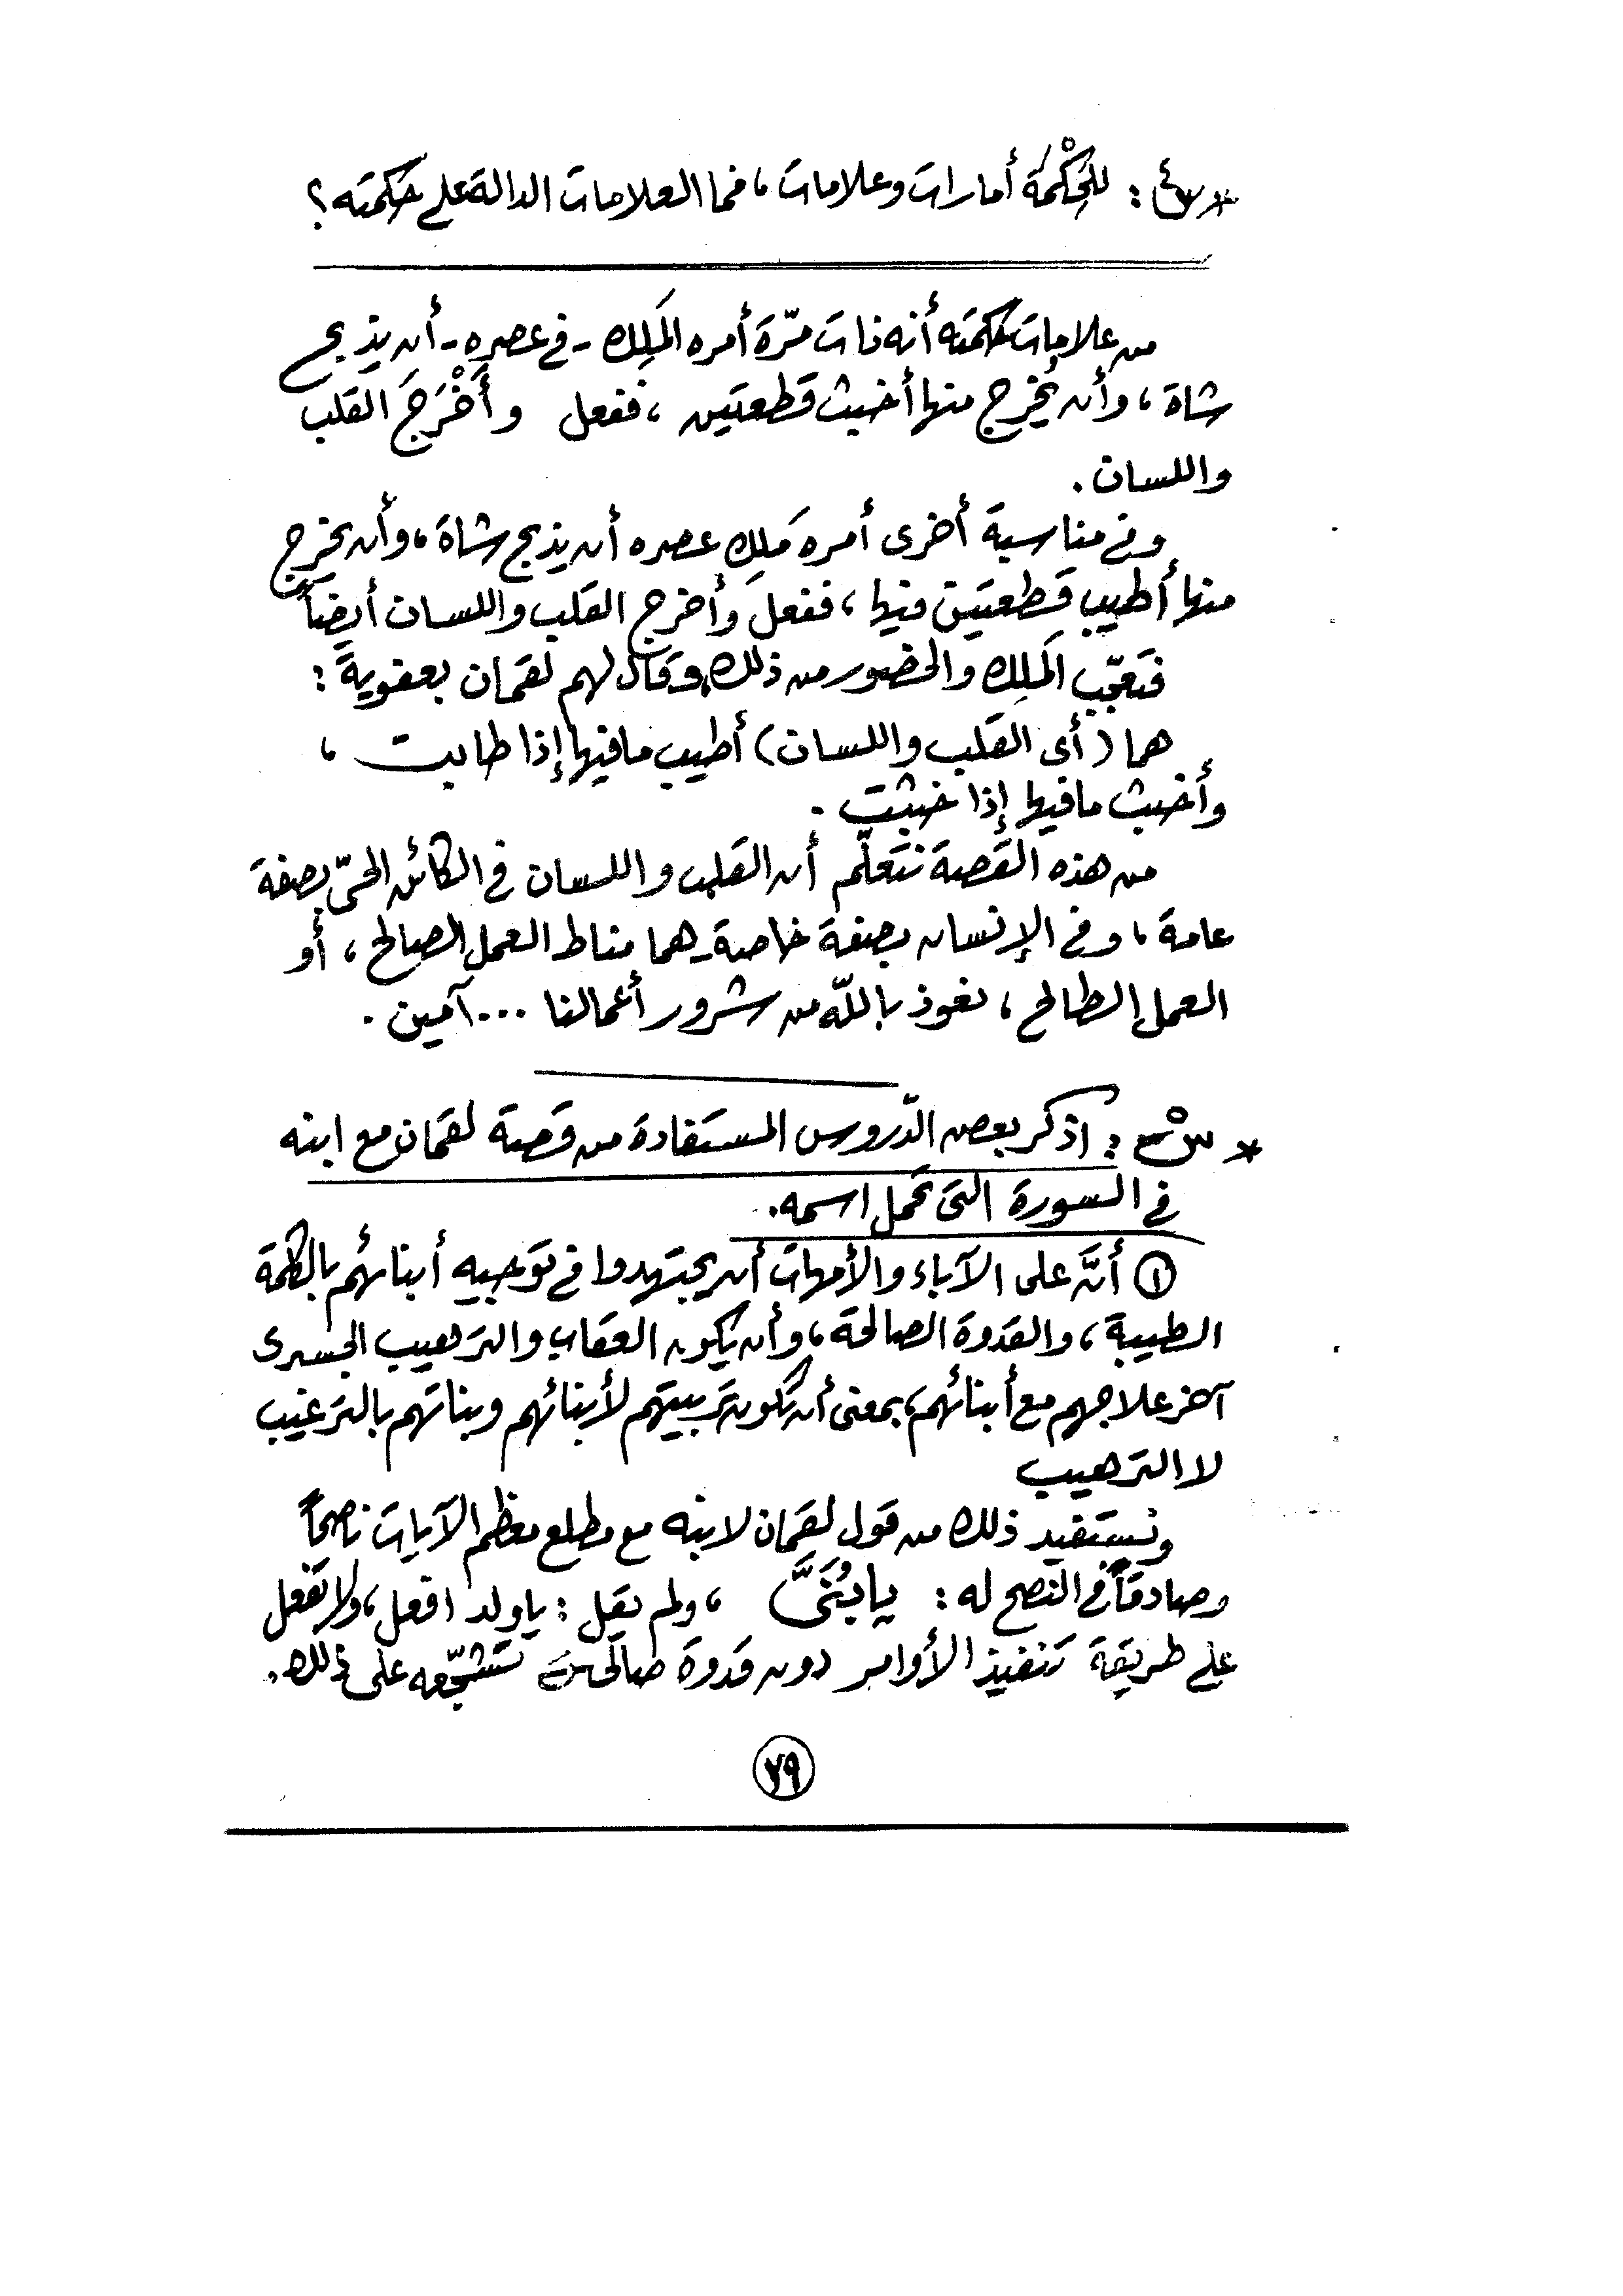 * س٤ : للحِكْمَة أمارات وعلامات ، فما العلامات الدالة على حكمته ؟
من علامات حكمته أنه ذات مرّة أمره المَلِك - في عصره - أن يذبح
شاة ، وأن يُخرج منها أخبث قطعتين ، ففعل وأَخْرَجَ القلب
واللسان .
وفي مناسبة أخرى أمره مَلِك عصره أن يذبح شاة ، وأن يخرج
منها أطيب قطعتين فيها ، ففعل وأخرج القلب واللسان أيضاً
فتعجّب المَلِك والحضور من ذلك ، وقال لهم لقمان بعفوية :
هما ( أى القلب واللسان ) أطيب ما فيها إذا طابت ،
وأخبث ما فيها إذا خبثت .
من هذه القصة نتعلّم أن القلب واللسان في الكائن الحىّ بصفة
عامة ، وفي الإنسان بصفة خاصة - هما مناط العمل الصالح ، أو
العمل الطالح ، نعوذ باللّه من شرور أعمالنا ... آمين .
* س٥ : اذكر بعض الدّروس المستفادة من قصة لقمان مع ابنه
في السورة التى تحمل اسمه .
١ أنَّه على الآباء والأمهات أن يجتهدوا في توجيه أبنائهم بالكلمة
الطيبة ، والقدوة الصالحة ، وأن يكون العقاب والترهيب الجسدى
آخر علاجهم مع أبنائهم ، بمعنى أن تكون تربيتهم لأبنائهم وبناتهم بالترغيب
لا الترهيب
ونستفيد ذلك من قول لقمان لابنه مع مطلع معظم الآيات ناصحاً
وصادقاً في النصح له : يا بُنَىَّ ، ولم يقل : يا ولد افعل ، ولا تفعل
على طريقة تنفيذ الأوامر دون قدوة صالحة تشجّعه على ذلك .
٧٩